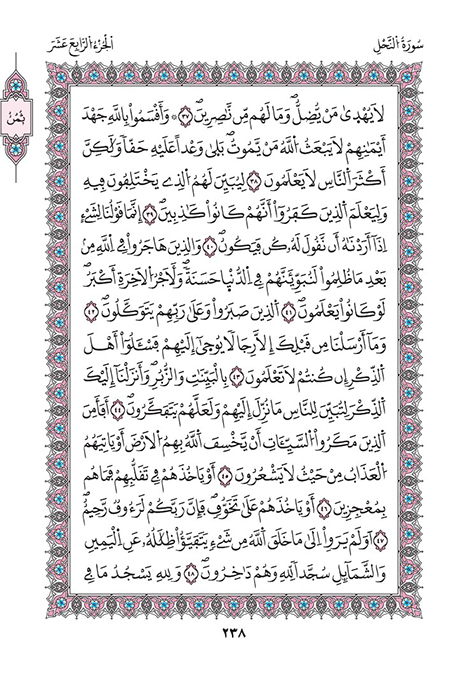 سُورَةُ اُ۬لنَّحْلِ
اَلْجُزْءُ اُ۬لرَّابِعَ عَشَرَ
ثُمُنُ
لَا يُهْد۪ىٰ مَنْ يُّضِلُّۖ وَمَا لَهُم مِّن نَّٰصِرِينَۖ ٣٧ ۞ وَأَقْسَمُواْ بِاللَّهِ جَهْدَ
أَيْمَٰنِهِمْ لَا يَبْعَثُ اُ۬للَّهُ مَنْ يَّمُوتُۖ بَل۪ىٰ وَعْداً عَلَيْهِ حَقّاٗ وَلَٰكِنَّ
أَكْثَرَ اَ۬لنَّاسِ لَا يَعْلَمُونَ ٣٨ لِيُبَيِّنَ لَهُمُ اُ۬لذِے يَخْتَلِفُونَ فِيهِ
وَلِيَعْلَمَ اَ۬لذِينَ كَفَرُوٓاْ أَنَّهُمْ كَانُواْ كَٰذِبِينَۖ ٣٩ إِنَّمَا قَوْلُنَا لِشَےْءٍ
اِذَآ أَرَدْنَٰهُ أَن نَّقُولَ لَهُۥ كُن فَيَكُونُۖ ٤٠ وَالذِينَ هَاجَرُواْ فِے اِ۬للَّهِ مِنۢ
بَعْدِ مَا ظُلِمُواْ لَنُبَوِّئَنَّهُمْ فِے اِ۬لدُّنْي۪ا حَسَنَةٗۖ وَلَأَجْرُ اُ۬لَاخِرَةِ أَكْبَرُۖ
لَوْ كَانُواْ يَعْلَمُونَۖ ٤١ اَ۬لذِينَ صَبَرُواْ وَعَلَىٰ رَبِّهِمْ يَتَوَكَّلُونَۖ ٤٢
وَمَآ أَرْسَلْنَا مِن قَبْلِكَ إِلَّا رِجَالاٗ يُوح۪ىٰٓ إِلَيْهِمْۖ فَسْـَٔلُوٓاْ أَهْلَ
اَ۬لذِّكْرِ إِن كُنتُمْ لَا تَعْلَمُونَ ٤٣ بِالْبَيِّنَٰتِ وَالزُّبُرِۖ وَأَنزَلْنَآ إِلَيْكَ
اَ۬لذِّكْرَ لِتُبَيِّنَ لِلنَّاسِ مَا نُزِّلَ إِلَيْهِمْ وَلَعَلَّهُمْ يَتَفَكَّرُونَۖ ٤٤ أَفَأَمِنَ
اَ۬لذِينَ مَكَرُواْ اُ۬لسَّيِّـَٔاتِ أَنْ يَّخْسِفَ اَ۬للَّهُ بِهِمُ اُ۬لَارْضَ أَوْ يَاتِيَهُمُ
اُ۬لْعَذَابُ مِنْ حَيْثُ لَا يَشْعُرُونَ ٤٥ أَوْ يَاخُذَهُمْ فِے تَقَلُّبِهِمْ فَمَا هُم
بِمُعْجِزِينَ ٤٦ أَوْ يَاخُذَهُمْ عَلَىٰ تَخَوُّفٖۖ فَإِنَّ رَبَّكُمْ لَرَءُوفٞ رَّحِيمٌۖ
٤٧ اَوَلَمْ يَرَوِاْ اِلَىٰ مَا خَلَقَ اَ۬للَّهُ مِن شَےْءٖ يَتَفَيَّؤُاْ ظِلَٰلُهُۥ عَنِ اِ۬لْيَمِينِ
وَالشَّمَآئِلِ سُجَّداٗ لِّلهِ وَهُمْ دَٰخِرُونَۖ ٤٨ وَلِلهِ يَسْجُدُ مَا فِے
٢٣٨